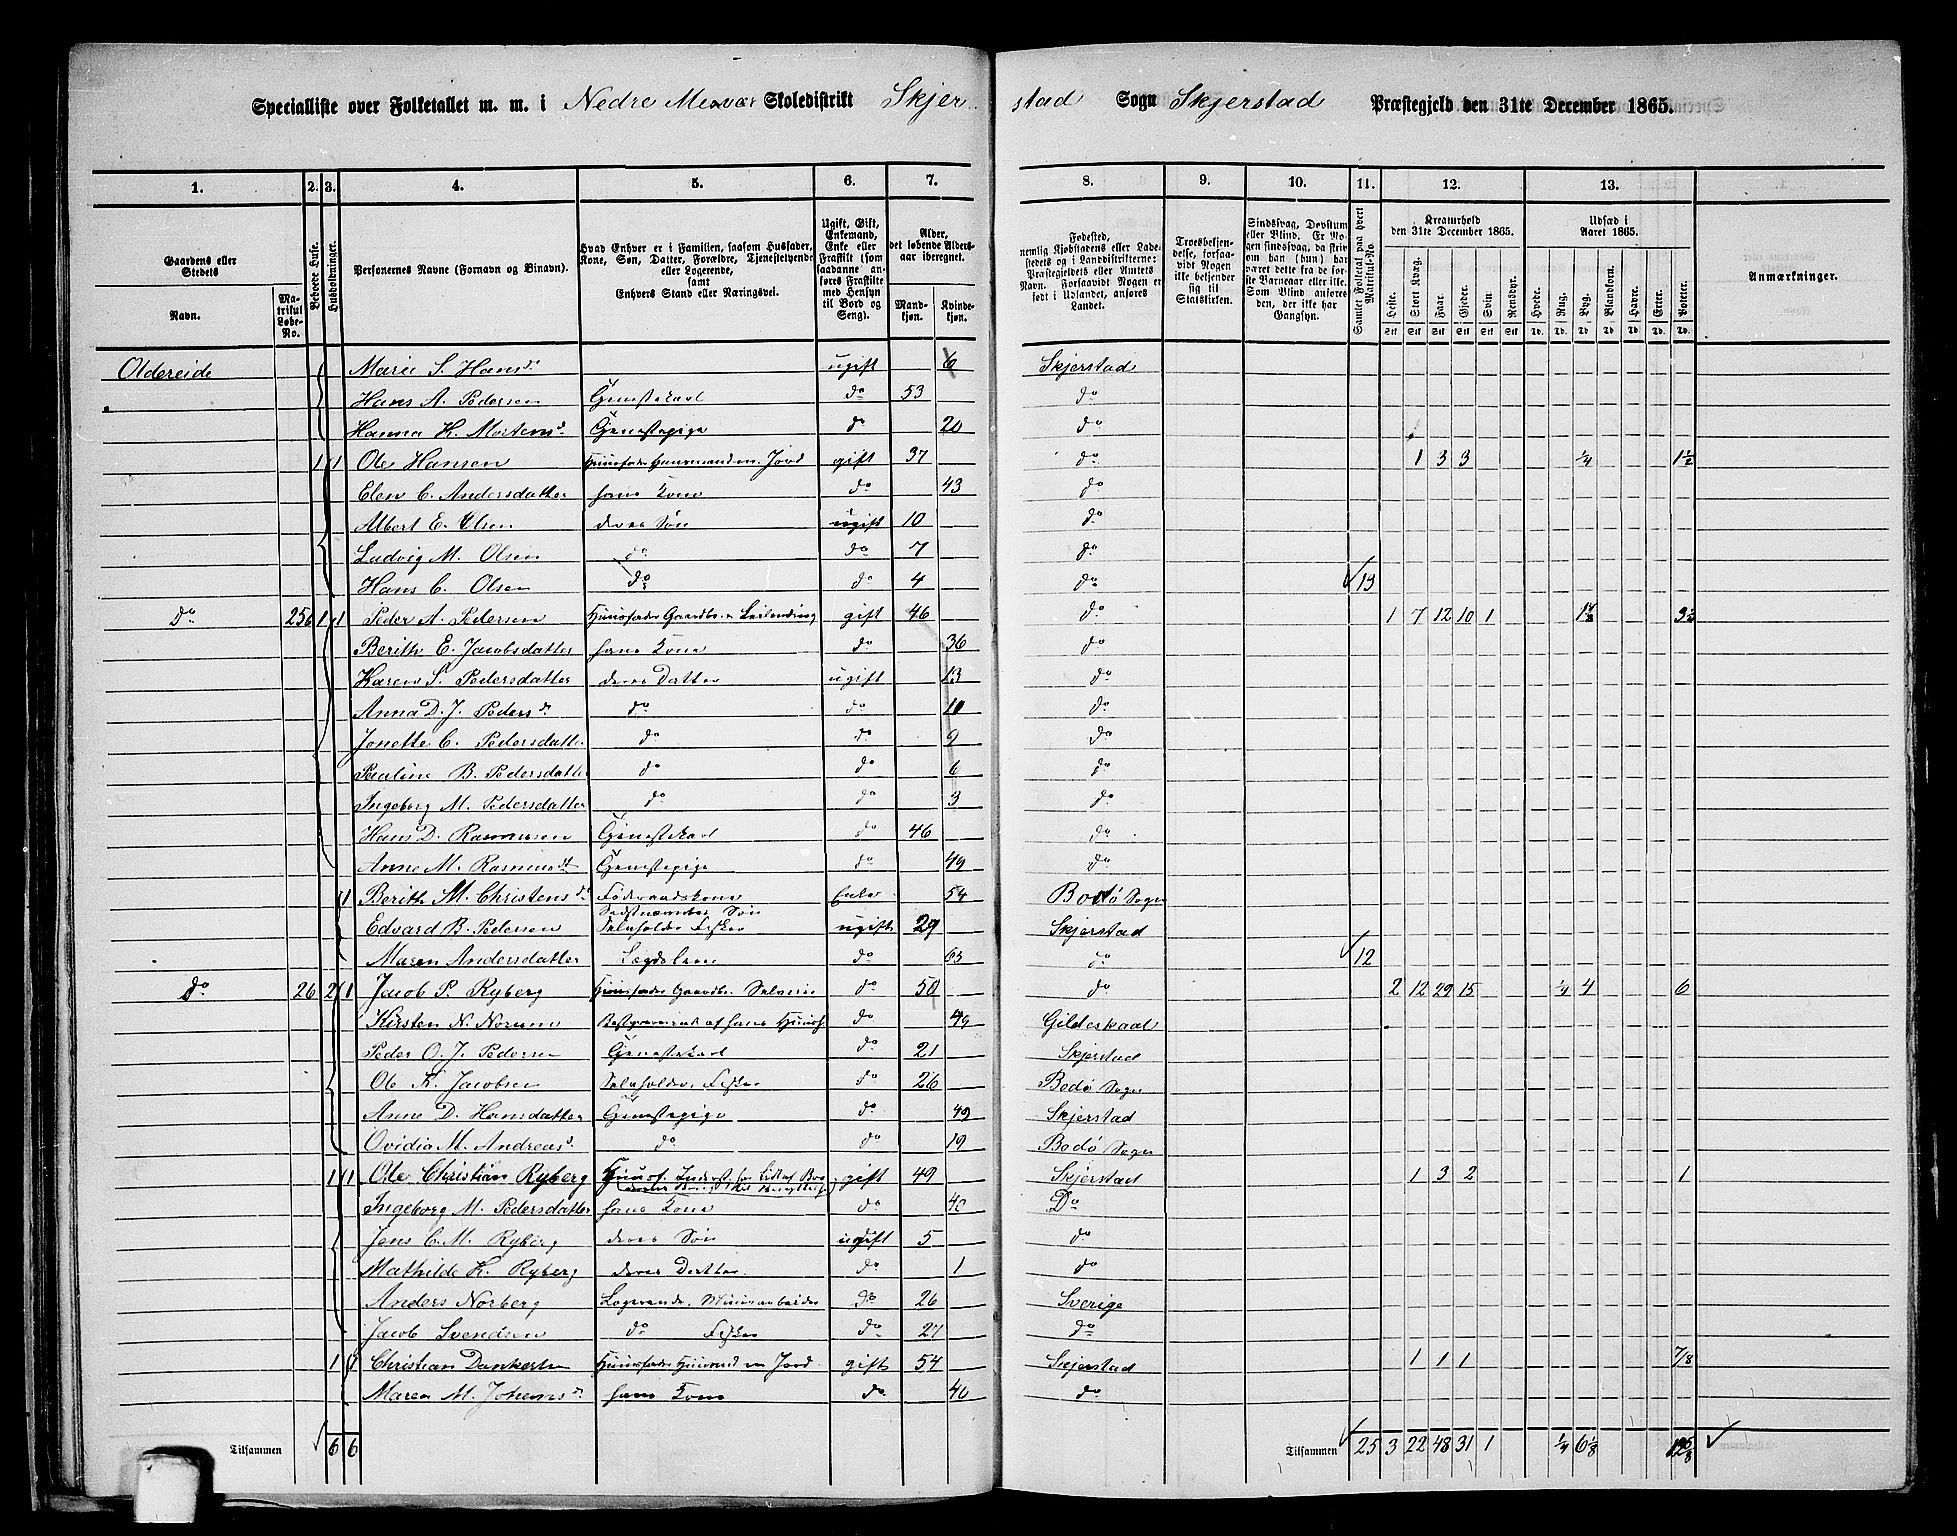 Specialliste over Folketallet m. m. i Nedre Misvær Skoledistrikt Skjerstad Sogn Skjerstad Præstegjeld den 31te December 1865.
1. 2. 3. 4. 5. 6. 7. 8. 9. 10. 11. 12. 13.
Gaardens eller Stedets
Navn.
Matrikul Løbe-No.
Beboede Huse.
Husholdninger.
Personernes Navne (Fornavn og Binavn).
Hvad Enhver er i Familien, saasom Husfader, Kone, Søn, Datter, Forældre, Tjenestetyende eller Logerende, samt Enhvers Stand eller Næringsvei.
Ugift, Gift, Enkemand, Enke eller Fraskilt (som saadanne anføres Fraskilte med Hensyn til Bord og Seng).
Alder, det løbende Aldersaar iberegnet.
Mandkjøn. Kvindekjøn.
Fødested, nemlig Kjøbstadens eller Ladestedets og i Landdistrikterne: Præstegjeldets eller Amtets Navn. Forsaavidt Nogen er født i Udlandet, anføres Landet.
Troesbekjendelse, forsaavidt Nogen ikke bekjender sig til Statskirken.
Sindssvag, Døvstum eller Blind. Er Nogen sindssvag, da skriv om han (hun) har været dette fra de første Barneaar eller ikke. Som Blind anføres den, der ikke har Gangsyn.
Samlet Folketal paa hvert Matrikul-No
Kreaturhold den 31te December 1865.
Heste. Stort Kvæg. Faar. Gjeder. Svin. Rensdyr.
Udsæd i Aaret 1865.
Hvede. Rug. Byg. Blandkorn. Havre. Erter. Poteter.
Anmærkninger.
Oldereide Marie S. Hansd. ugift 6 Skjerstad
Hans A. Pedersen Tjenestekarl do 53 do
Hanna K. Mortensd. Tjenestepige do 20 do
1 1 Ole Hansen Huusfader Huusmand m. Jord gift 37 do 1 3 3 1/4 1 1/2
Elen C. Andersdatter hans Kone do 43 do
Albert E. Olsen deres Søn ugift 10 do
Ludvig M. Olsen do do 7 do
Hans C. Olsen do do 4 do 13
Do 25 1 1 Peder A. Pedersen Huusfader Gaardbr. Leilending gift 46 do 1 7 12 10 1
Berith E. Jacobsdatter hans Kone do 36 do
Karen S. Pedersdatter deres Datter ugift 13 do
Anna D. J. Pedersd. do do 10 do
Jonette C. Pedersdatter do do 9 do
Pauline B. Pedersdatter do do 6 do
Ingeborg M. Pedersdatter do do 3 do
Hans D. Rasmusen Tjenestekarl do 46 do
Anne M. Rasmusdt Tjenestepige do 49 do
1 Berith M. Christensd. Føderaadskone Enke 54 Bodø Sogn
Edvard B. Pedersen Sidstnævntes Søn Selvholder Fisker ugift 29 Skjerstad
Maren Andersdatter Lægdslem do 63 do 12
Do 26 2 1 Jacob P. Ryberg Huusfader Gaardbr. Selveier do 50 do 2 12 29 15 1/4 4 6
Kirsten N. Norum Bestyrerinde af hans Huus do 49 Gildeskaal
Peder O. J. Pedersen Tjenestekarl do 21 Skjerstad
Ole K. Jacobsen Selvholder, Fisker do 26 Bodø Sogn
Anne D. Hansdatter Tjenestepige do 49 Skjerstad
Ovidia M. Andreasd. do do 19 Bodø Sogn
1 1 Ole Christian Ryberg Huusf. gift 49 Skjerstad 1 3 2 1
Ingeborg M. Pedersdatter hans Kone do 40 Do
Jens C. M. Ryberg deres Søn ugift 5 do
Mathilde K. Ryberg deres Datter do 1 do
Anders Norberg Logerende, Minearbeider do 26 Sverige
Jacob Svendsen do Fisker do 27 do
1 1 Christian Dankertsen Huusfader Huusmand m Jord gift 54 Skjerstad 1 1 1 7/8
Maren M. Johansd. hans Kone do 40 do
Tilsammen 6 6 Tilsammen 25 3 22 48 31 1 1/4 6 1/8